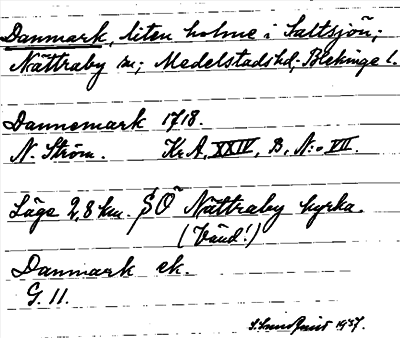 Danmark, liten holme i Saltsjön;
Nättraby sn; Medelstads hd; Blekinge l.
Dannemark 1718.
N. Ström. KrA, XXIV, B, N:o VII.
Läge 2,8 km. SÖ Nättraby kyrka.
(Vänd!)
Danmark ek.
G. 11.
1937.